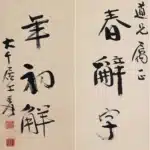 道兄屬正
春辭字
年初解
大千居士爰